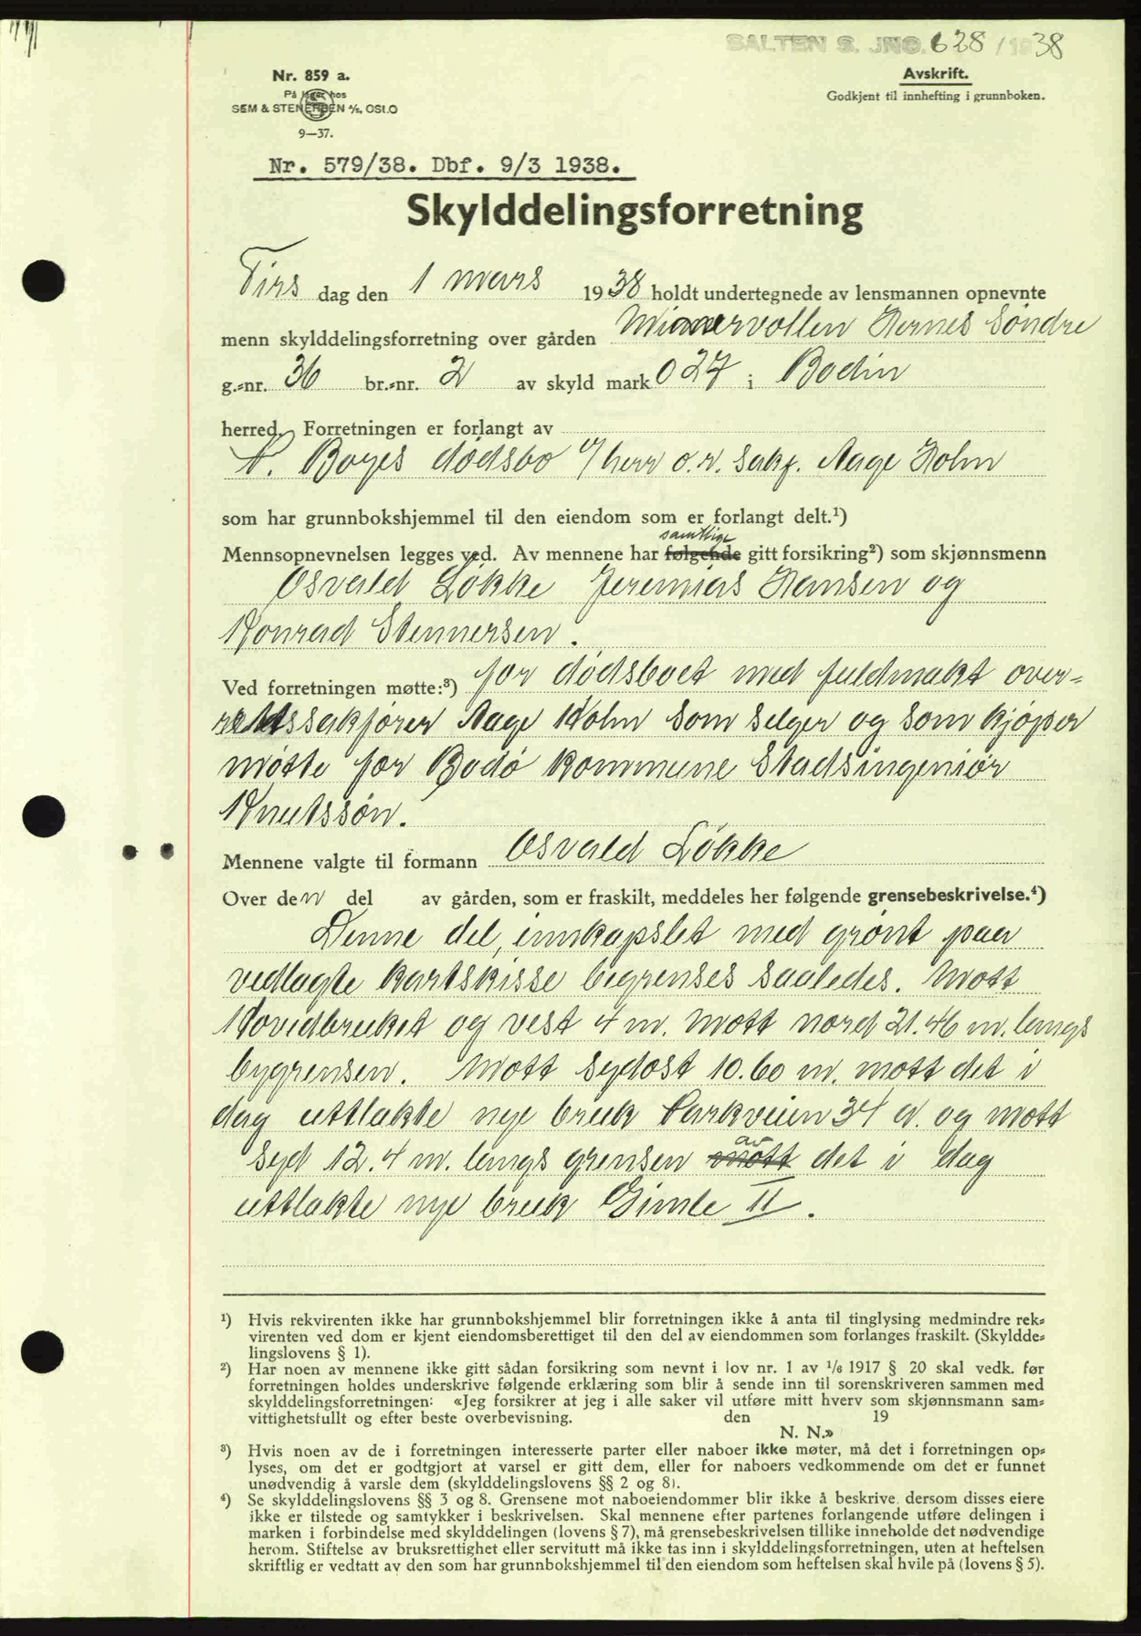 SALTEN S. JNO. 628/1938
Nr. 859 a.
På lager hos
SEM & STENERSEN A/S, OSLO
9—37.
Avskrift.
Godkjent til innhefting i grunnboken.
Nr. 579/38. Dbf. 9/3 1938.
Skylddelingsforretning
Tirs dag den 1 mars 1938 holdt undertegnede av lensmannen opnevnte
menn skylddelingsforretning over gården Hernes Søndre
g.-nr. 36 br.-nr. 2 av skyld mark 0 27 i Bodin
herred. Forretningen er forlangt av
N. Boyes dødsbo v/herr o.r. sakf. Aage Holm
som har grunnbokshjemmel til den eiendom som er forlangt delt.¹)
samtlige
Mennsopnevnelsen legges ved. Av mennene har følgende gitt forsikring²) som skjønnsmenn
Osvald Løkke Jeremias Hansen og
Konrad Stennersen.
Ved forretningen møtte:³) for dødsboet med fuldmakt over-
rettssakfører Aage Holm som selger og som kjøper
møtte for Bodø kommune Stadsingeniør
Knutssøn.
Mennene valgte til formann Osvald Løkke
Over den del av gården, som er fraskilt, meddeles her følgende grensebeskrivelse.⁴)
Denne del, innkapslet med grønt paa
vedlagte kartskisse begrenses saaledes. Mott
Hovedbruket og vest 4 m. Mott nord 21.46 m. langs
bygrensen. Mott sydøst 10.60 m. mott det i
dag uttlakte nye bruk Parkveien 34 a. og mott
av
syd 12.4 m. langs grensen mott det i dag
uttlakte nye bruk Gimle II.
¹) Hvis rekvirenten ikke har grunnbokshjemmel blir forretningen ikke å anta til tinglysing medmindre rek-
virenten ved dom er kjent eiendomsberettiget til den del av eiendommen som forlanges fraskilt. (Skyldde-
lingslovens § 1).
²) Har noen av mennene ikke gitt sådan forsikring som nevnt i lov nr. 1 av 1/6 1917 § 20 skal vedk. før
forretningen holdes underskrive følgende erklæring som blir å sende inn til sorenskriveren sammen med
skylddelingsforretningen: «Jeg forsikrer at jeg i alle saker vil utføre mitt hverv som skjønnsmann sam-
vittighetsfullt og efter beste overbevisning. den 19
N. N.»
³) Hvis noen av de i forretningen interesserte parter eller naboer ikke møter, må det i forretningen op-
lyses, om det er godtgjort at varsel er gitt dem, eller for naboers vedkommende om det er funnet
unødvendig å varsle dem (skylddelingslovens §§ 2 og 8).
⁴) Se skylddelingslovens §§ 3 og 8. Grensene mot naboeiendommer blir ikke å beskrive dersom disses eiere
ikke er tilstede og samtykker i beskrivelsen. Skal mennene efter partenes forlangende utføre delingen i
marken i forbindelse med skylddelingen (lovens § 7), må grensebeskrivelsen tillike inneholde det nødvendige
herom. Stiftelse av bruksrettighet eller servitutt må ikke tas inn i skylddelingsforretningen, uten at heftelsen
skriftlig er vedtatt av den som har grunnbokshjemmel til den eiendom som heftelsen skal hvile på (lovens § 5).